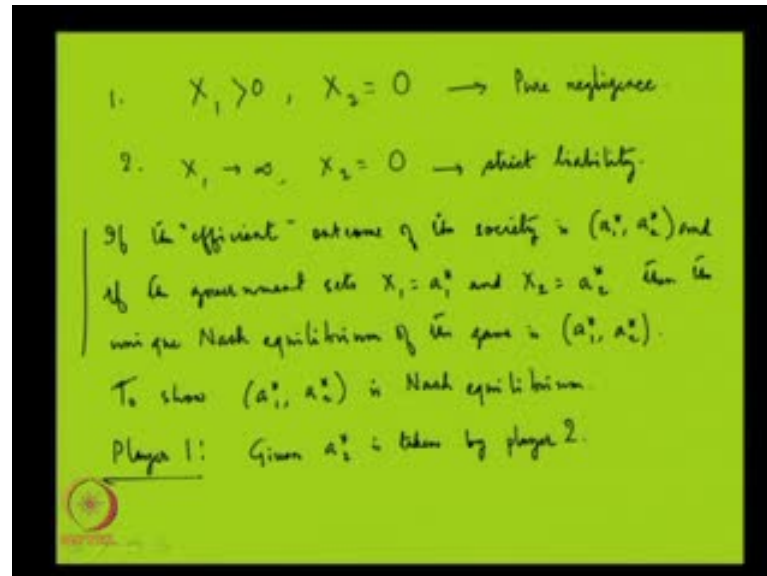 1. X₁ > 0, X₂ = 0 → Pure negligence.
2. X₁ → ∞, X₂ = 0 → strict liability.
If the "efficient" outcome of the society is (a₁*, a₂*) and
if the government sets X₁ = a₁* and X₂ = a₂* then the
unique Nash equilibrium of the game is (a₁*, a₂*).
To show (a₁*, a₂*) is Nash equilibrium.
Player 1: Given a₂* is taken by player 2.
NPTEL